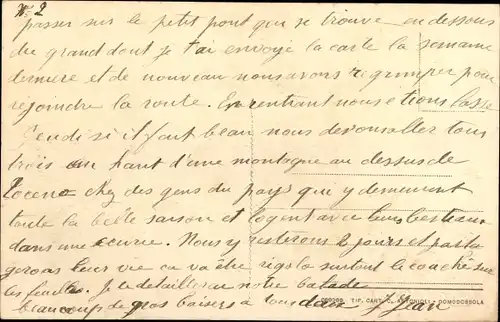 N° 2
passer sur le petit pont que se trouve en dessous
du grand dont je t'ai envoyé la carte la semaine
derniere et de nouveau nous avons regrimper pour
rejoindre la route. En rentrant nous etions lasse
Jeudi si il fait beau nous devons aller tous
trois en haut d'une montagne au dessus de
chez des gens du pays que y demeurent
toute la belle saison et logent avec leurs bestiaux
dans une ecurie. Nous y resterons 2 jours et parta
gerons leur vie ca va être rigolo surtout le couché sur
les feuilles. Je te detaillerai notre balade
beaucoup de gros baisers à tous deux Jean
TIP. CART. C. ANTONIOLI - DOMODOSSOLA